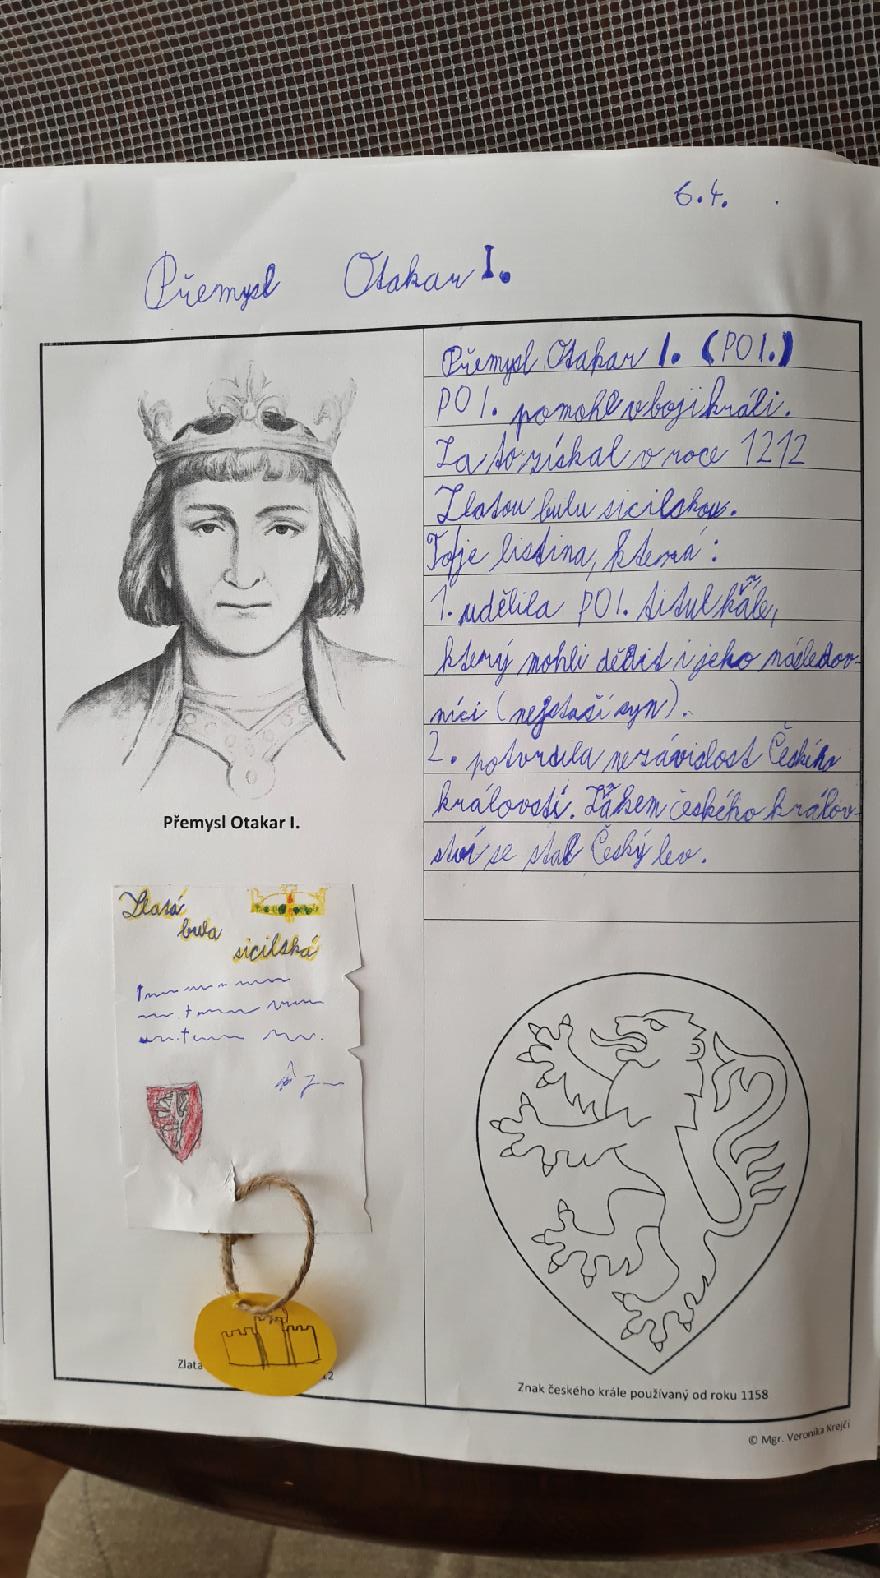 6.4.
Přemysl Otakar I.
Přemysl Otakar I. (PO I.)
PO I. pomohl v boji králi.
Za to získal v roce 1212
Zlatou bulu sicilskou.
To je listina, která:
1. udělila PO I. titul křále,
který mohli dědit i jeho následov-
níci (nejstaší syn).
2. potvrdila nezávislost Českého
královstí. Znakem českého králov-
ství se stal Český lev.
Přemysl Otakar I.
Zlatá
bula
sicilská
Zlatá
12
Znak českého krále používaný od roku 1158
© Mgr. Veronika Krejčí